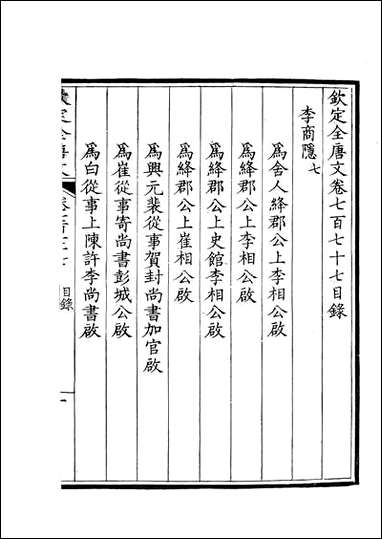 欽定全唐文卷七百七十七目錄
李商隱七
為舍人絳郡公上李相公啟
為絳郡公上李相公啟
為絳郡公上史館李相公啟
為絳郡公上崔相公啟
為興元裴從事賀封尚書加官啟
為崔從事寄尚書彭城公啟
為白從事上陳許李尚書啟
目錄
一